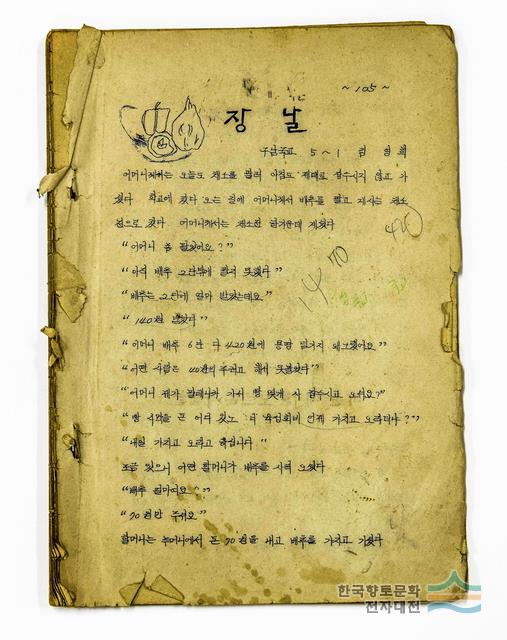 ~ 105 ~
장 날
5 ~ 1 김
어머니께서는 오늘도 채소를 팔러 아침도 제대로 잡수시지 않고 가
셨다 학교에 갔다 오는 길에 어머니께서 배추를 팔고 계시는 채소
전으로 갔다 어머니께서는 채소전 한가운데 계셨다
"어머니 좀 팔았어요?"
"아직 배추 2단밖에 팔지 못했다"
"배추는 2단에 얼마 받았는데요"
"140원 받았다"
"어머니 배추 6단 다 420원에 몽땅 넘기지 왜그랬어요"
"어떤 사람은 40원씩 주려고 해서 못팔았다"
"어머니 제가 팔테니까 가서 빵 몇개 사 잡수시고 오셔요?"
"빵 사먹을 돈 어디 있노 너 육성회비 언제 가지고 오라더냐?"
"내일 가지고 오라고 했습니다"
조금 있으니 어떤 할머니가 배추를 사러 오셨다
"배추 얼마여요"
"70원만 주셔요"
할머니는 주머니에서 돈 70원을 내고 배추를 가지고 가셨다
14 70
420
한국향토문화
전자대전